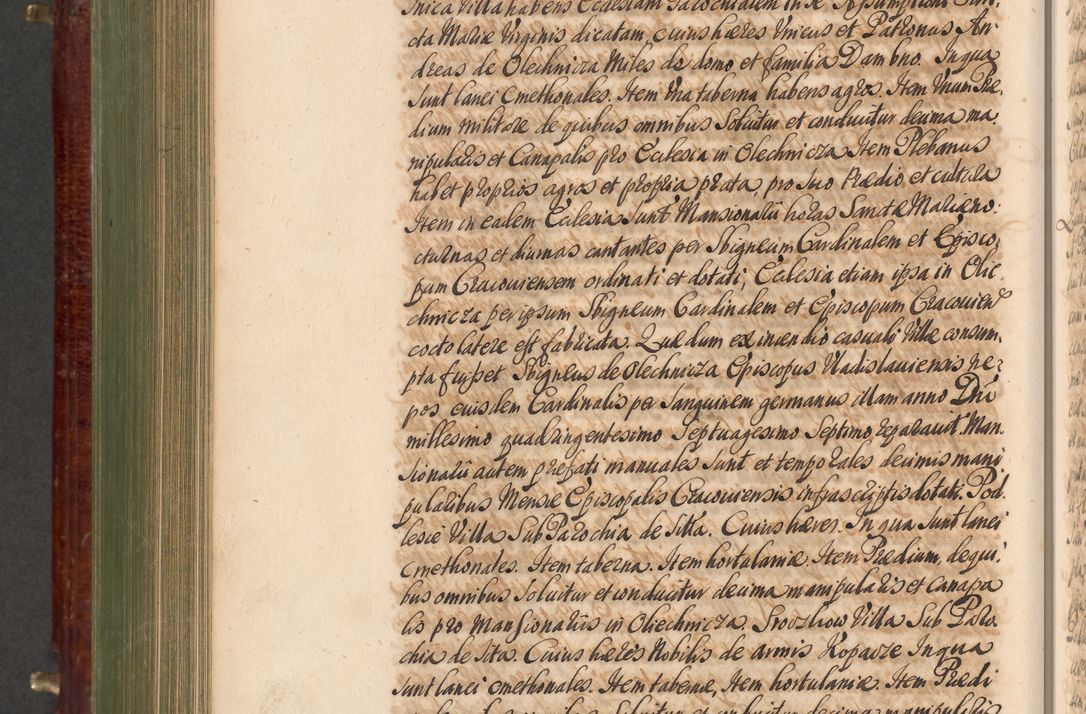 nica Villa habens Ecclesiam Parochialem in se Assumptioni San,
ctæ Mariæ Virginis dicatam, cuius hæres Vnicus et Patronus An
dreas de Olechnicza Miles de domo et familia Dambno. In qua
sunt lanei Cmethonales. Item Vna taberna habens agros. Item Vnum Præ,
dium militare de quibus omnibus Soluitur et conducitur decima ma,
nipularis et Canapalis pro Ecclesia in Olechnicza Item Plebanus
habet proprios agros et propria prata, pro suo Prædio et cultura
Item in eadem Ecclesia sunt Mansionarii horas Sanctæ Mariæ no:
cturnas et diurnas cantantes per Sbigneum Cardinalem et Episco,
pum Cracouiensem ordinati et dotati; Ecclesia etiam ipsa in Olie,
chnicza per ipsum Sbigneum Cardinalem et Episcopum Cracouien
cocto latere est fabricata. Quæ dum ex incendio casuali Villæ consum,
pta fuisset Sbigneus de Olechnicza Episcopus Vladislauiensis ne:
pos eiusdem Cardinalis per sanguinem germanus illam anno Dni
millesimo quadringentesimo Septuagesimo Septimo reparauit. Man,
sionarii autem præfati manuales sunt et temporales decimis mani
pularibus Mensæ Episcopalis Cracouiensis infrascriptis dotati. Pod,
lesie Villa Sub Parochia de Sita. Cuius hæres. In qua sunt lanei
Cmethonales. Item taberna. Item hortulaniæ. Item Prædium, de qui,
bus omnibus soluitur et conducitur decima manipularis et canapa
lis pro Mansionariis in Oliechnicza. Srovzlow Villa Sub Paro
chia de Sita. Cuius hæres Nobilis de armis Kopacze In qua
sunt lanei Cmethonales. Item tabernæ, Item hortulaniæ. Item Prædi